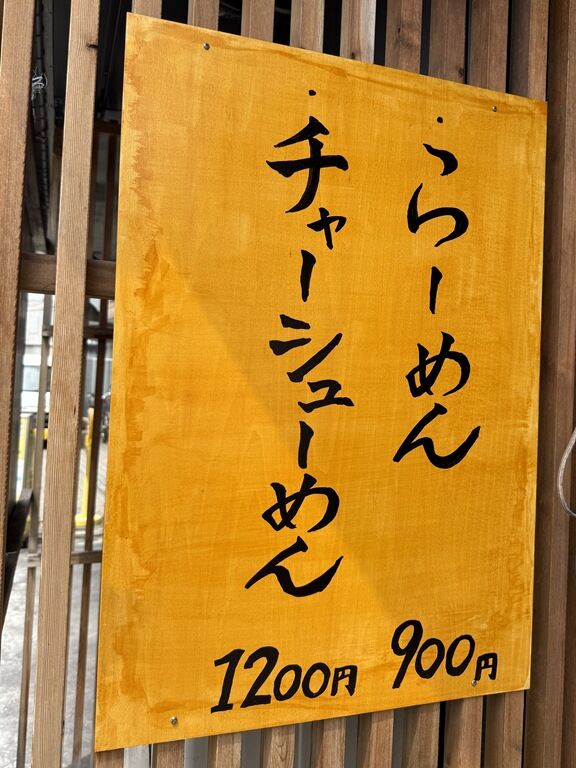 ・らーめん 900円
・チャーシューめん 1200円